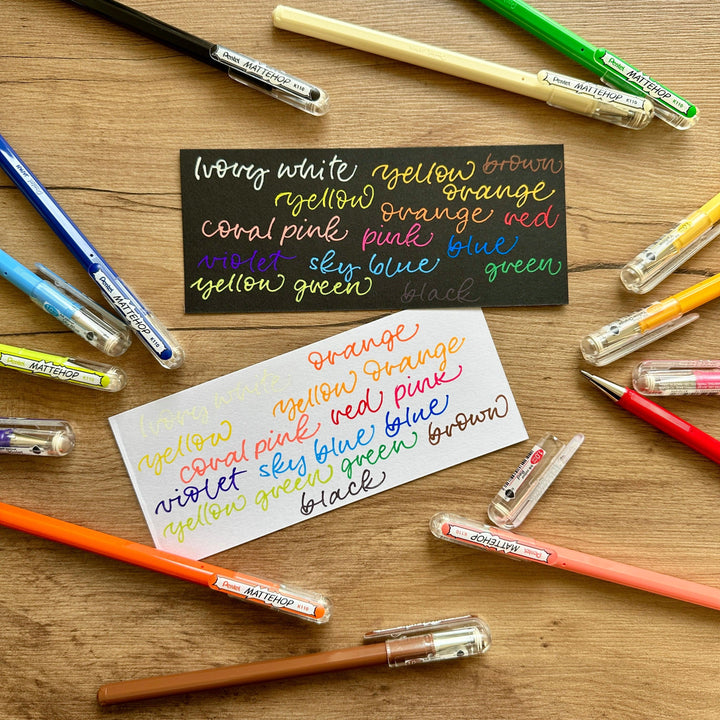 Pentel MATTEHOP K110
Pentel MATTEHOP K110
Pentel MATTEHOP K110
Ivory white yellow brown
yellow orange
coral pink orange red
violet pink blue
sky blue green
yellow green black
Pentel MATTEHOP K110
Pentel MATTEHOP K110
orange
Ivory white yellow orange
yellow red pink
coral pink blue
violet sky blue brown
yellow green green
black
Pentel MATTEHOP K110
Pentel MATTEHOP K110